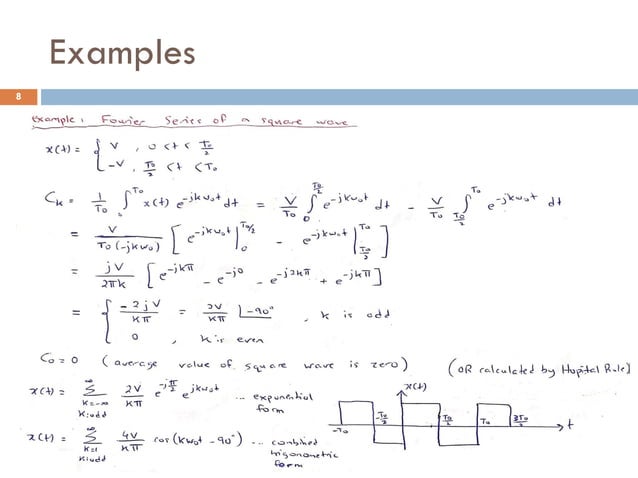 Examples
8
example: Fourier Series of a square wave
x(t) = { V , 0 < t < T₀/2
-V , T₀/2 < t < T₀
Cₖ = 1/T₀ ∫₀^T₀ x(t) e^(-jkω₀t) dt = V/T₀ ∫₀^(T₀/2) e^(-jkω₀t) dt - V/T₀ ∫_(T₀/2)^T₀ e^(-jkω₀t) dt
= V/(T₀(-jkω₀)) [ e^(-jkω₀t) |₀^(T₀/2) - e^(-jkω₀t) |_(T₀/2)^T₀ ]
= jV/(2πk) [ e^(-jkπ) - e^(-j0) - e^(-j2kπ) + e^(-jkπ) ]
= { -2jV/(kπ) = 2V/(kπ) ∠-90° , k is odd
0 , k is even
C₀ = 0 (average value of square wave is zero) (OR calculated by Hopital Rule)
x(t) = ∑_(k=-∞, k:odd)^∞ 2V/(kπ) e^(-jπ/2) e^(jkω₀t) ... exponential form
x(t) = ∑_(k=1, k:odd)^∞ 4V/(kπ) cos(kω₀t - 90°) ... combined trigonometric form
x(t)
-T₀ -T₀/2 T₀/2 T₀ 3T₀/2 t